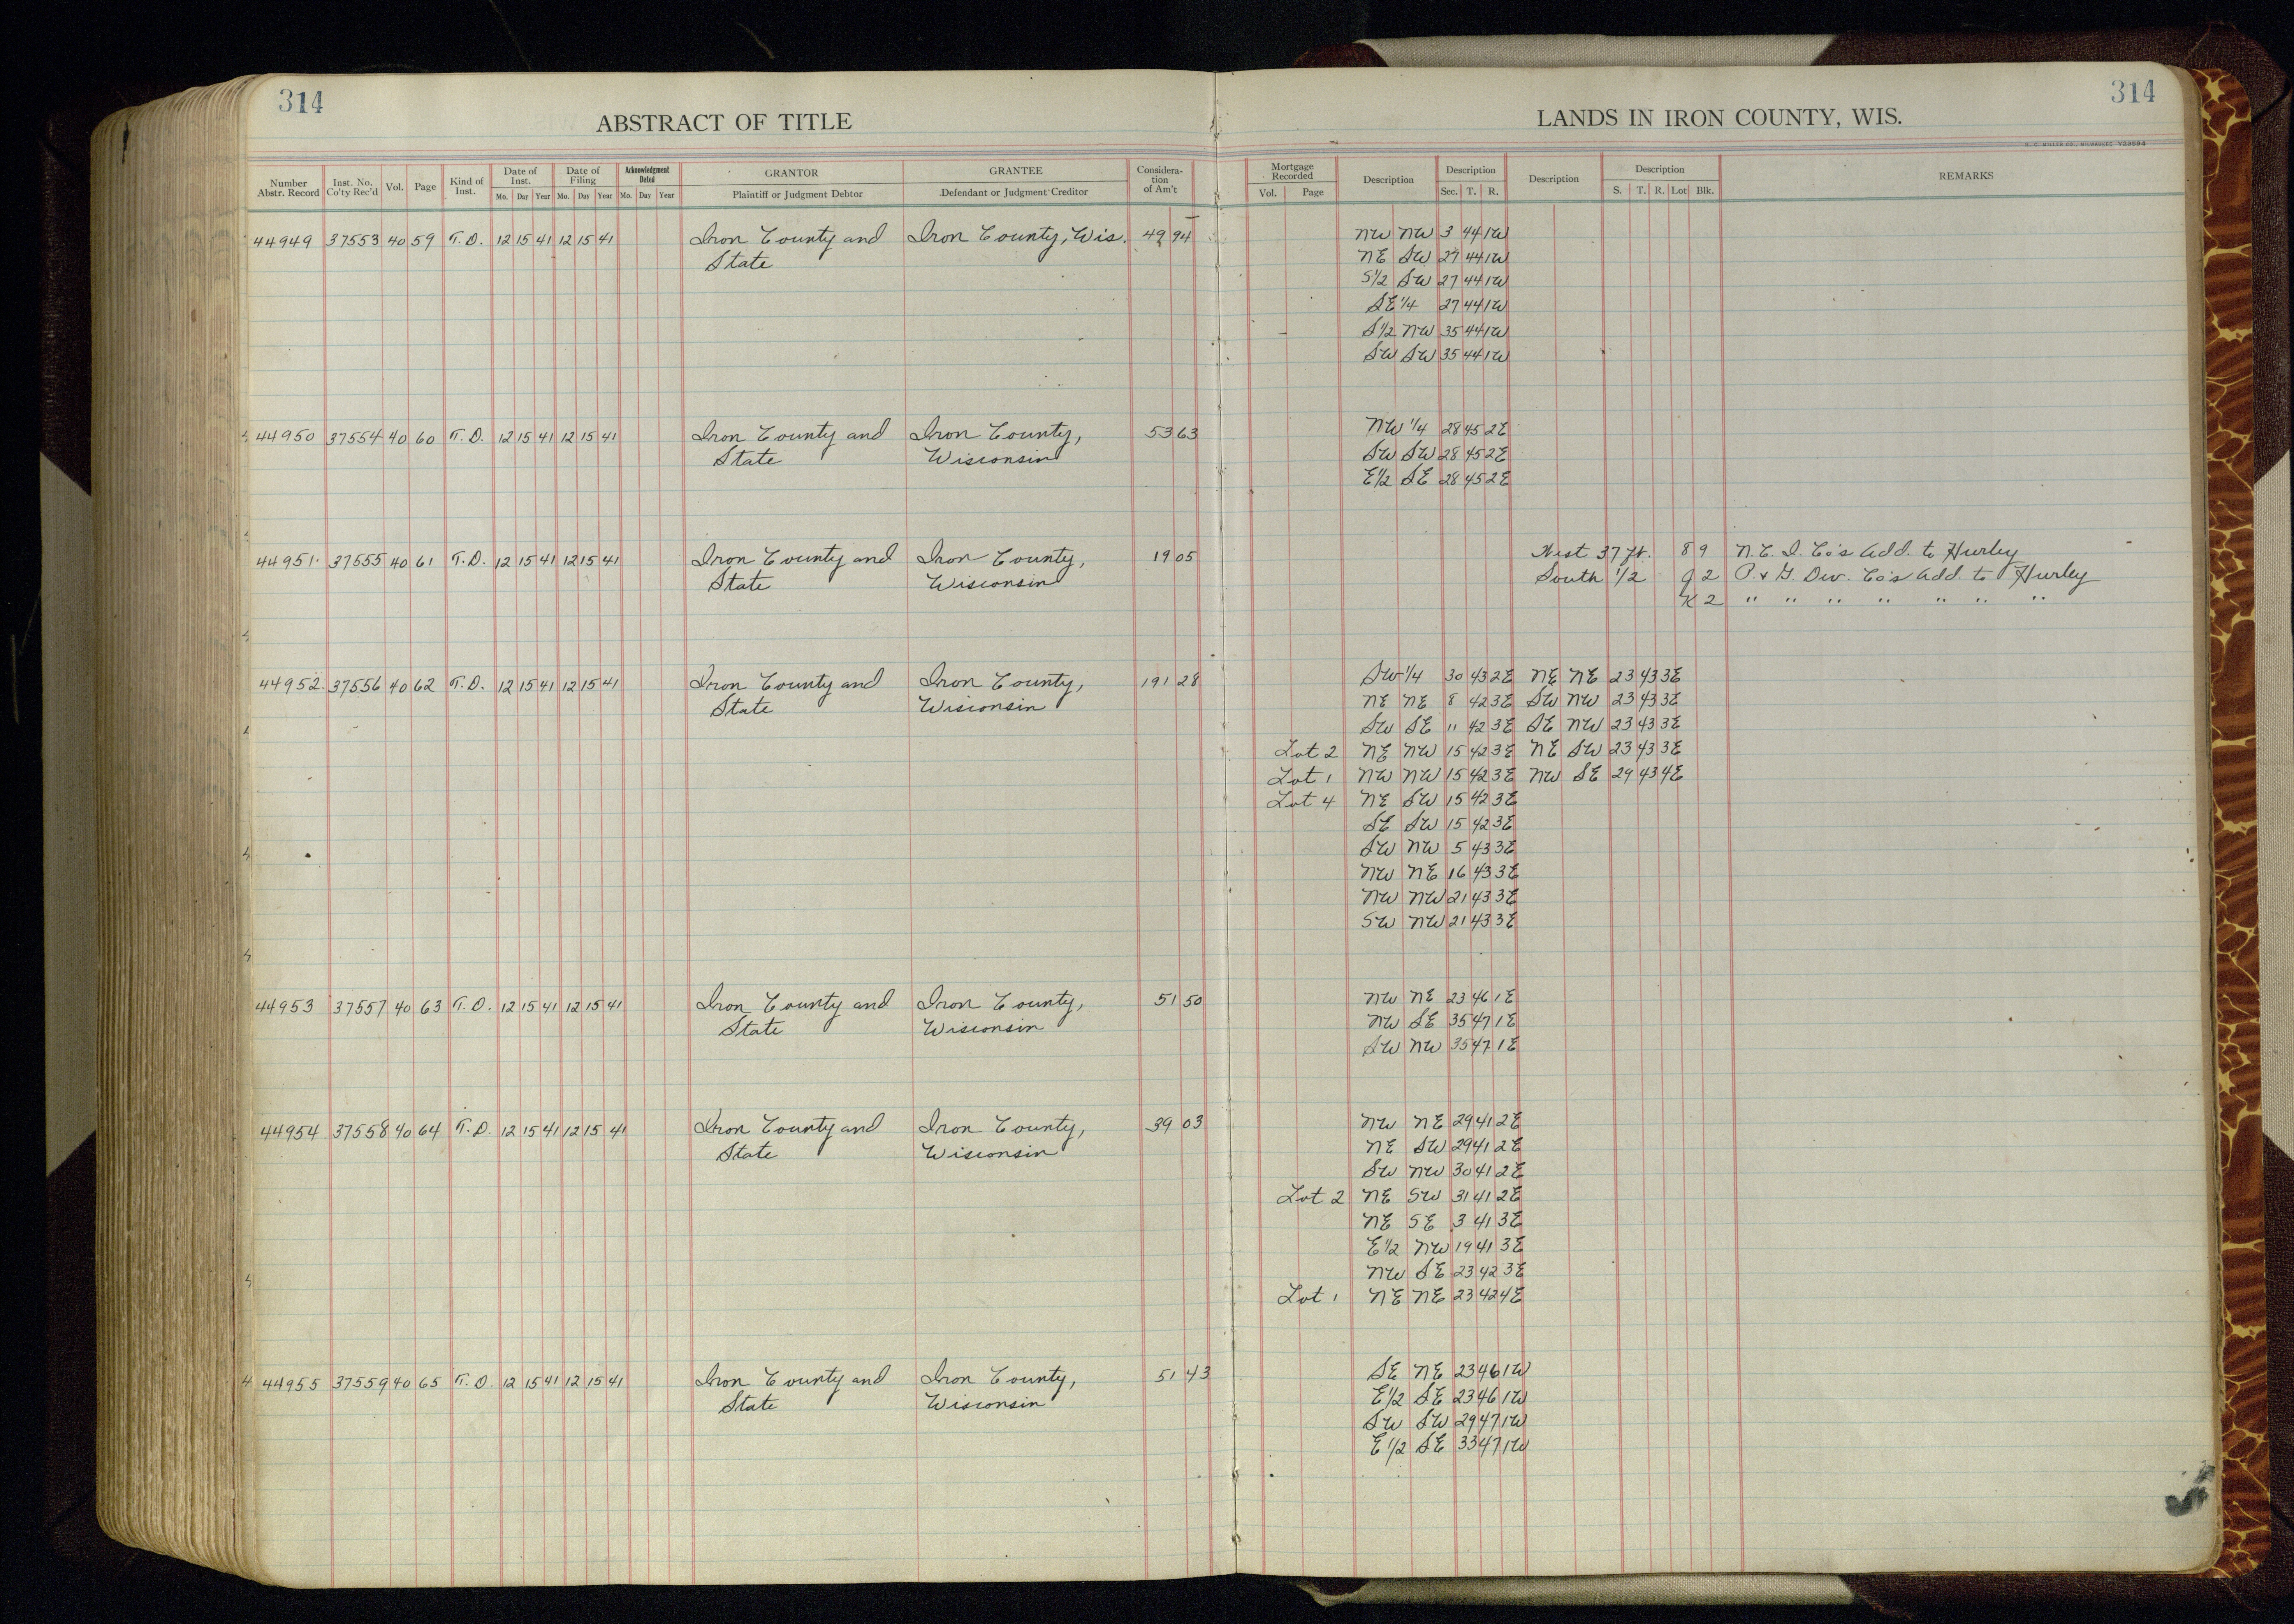 314
ABSTRACT OF TITLE
314
LANDS IN IRON COUNTY, WIS.
Number Abstr. Record Inst. No. Co'ty Rec'd Vol. Page Kind of Inst. Date of Inst. Mo. Day Year Date of Filing Mo. Day Year Acknowledgment Dated Mo. Day Year GRANTOR Plaintiff or Judgment Debtor GRANTEE Defendant or Judgment Creditor Considera-tion of Am't Mortgage Recorded Vol. Page Description Description Sec. T. R. Description Description S. T. R. Lot Blk. REMARKS
44949 37553 40 59 T.D. 12 15 41 12 15 41 Iron County and Iron County, Wis. 49 94 NW NW 3 44 1W
State NE SW 27 44 1W
S1/2 SW 27 44 1W
SE 1/4 27 44 1W
S1/2 NW 35 44 1W
SW SW 35 44 1W
44950 37554 40 60 T.D. 12 15 41 12 15 41 Iron County and Iron County, 53 63 NW 1/4 28 45 2E
State Wisconsin SW SW 28 45 2E
E1/2 SE 28 45 2E
44951 37555 40 61 T.D. 12 15 41 12 15 41 Iron County and Iron County, 19 05 West 37 ft. 8 9 N.C.I. Co's Add. to Hurley
State Wisconsin South 1/2 J 2 P. & G. Dev. Co's Add. to Hurley
K 2 " " " " " " "
44952 37556 40 62 T.D. 12 15 41 12 15 41 Iron County and Iron County, 191 28 SW 1/4 30 43 2E NE NE 23 43 3E
State Wisconsin NE NE 8 42 3E SW NW 23 43 3E
SW SE 11 42 3E SE NW 23 43 3E
Lot 2 NE NW 15 42 3E NE SW 23 43 3E
Lot 1 NW NW 15 42 3E NW SE 29 43 4E
Lot 4 NE SW 15 42 3E
SE SW 15 42 3E
SW NW 5 43 3E
NW NE 16 43 3E
NW NW 21 43 3E
SW NW 21 43 3E
44953 37557 40 63 T.D. 12 15 41 12 15 41 Iron County and Iron County, 51 50 NW NE 23 46 1E
State Wisconsin NW SE 35 47 1E
SW NW 35 47 1E
44954 37558 40 64 T.D. 12 15 41 12 15 41 Iron County and Iron County, 39 03 NW NE 29 41 2E
State Wisconsin NE SW 29 41 2E
SW NW 30 41 2E
Lot 2 NE SW 31 41 2E
NE SE 3 41 3E
E1/2 NW 19 41 3E
NW SE 23 42 3E
Lot 1 NE NE 23 42 4E
44955 37559 40 65 T.D. 12 15 41 12 15 41 Iron County and Iron County, 51 43 SE NE 23 46 1W
State Wisconsin E1/2 SE 23 46 1W
SW SW 29 47 1W
E1/2 SE 33 47 1W